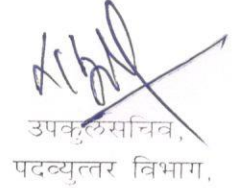 उपकुलसचिव,
पदव्युत्तर विभाग,